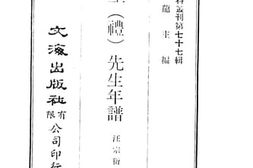 料叢刊第七十七輯
龍主編
（禮）先生年譜
汪宗衍
文海出版社有限公司印行